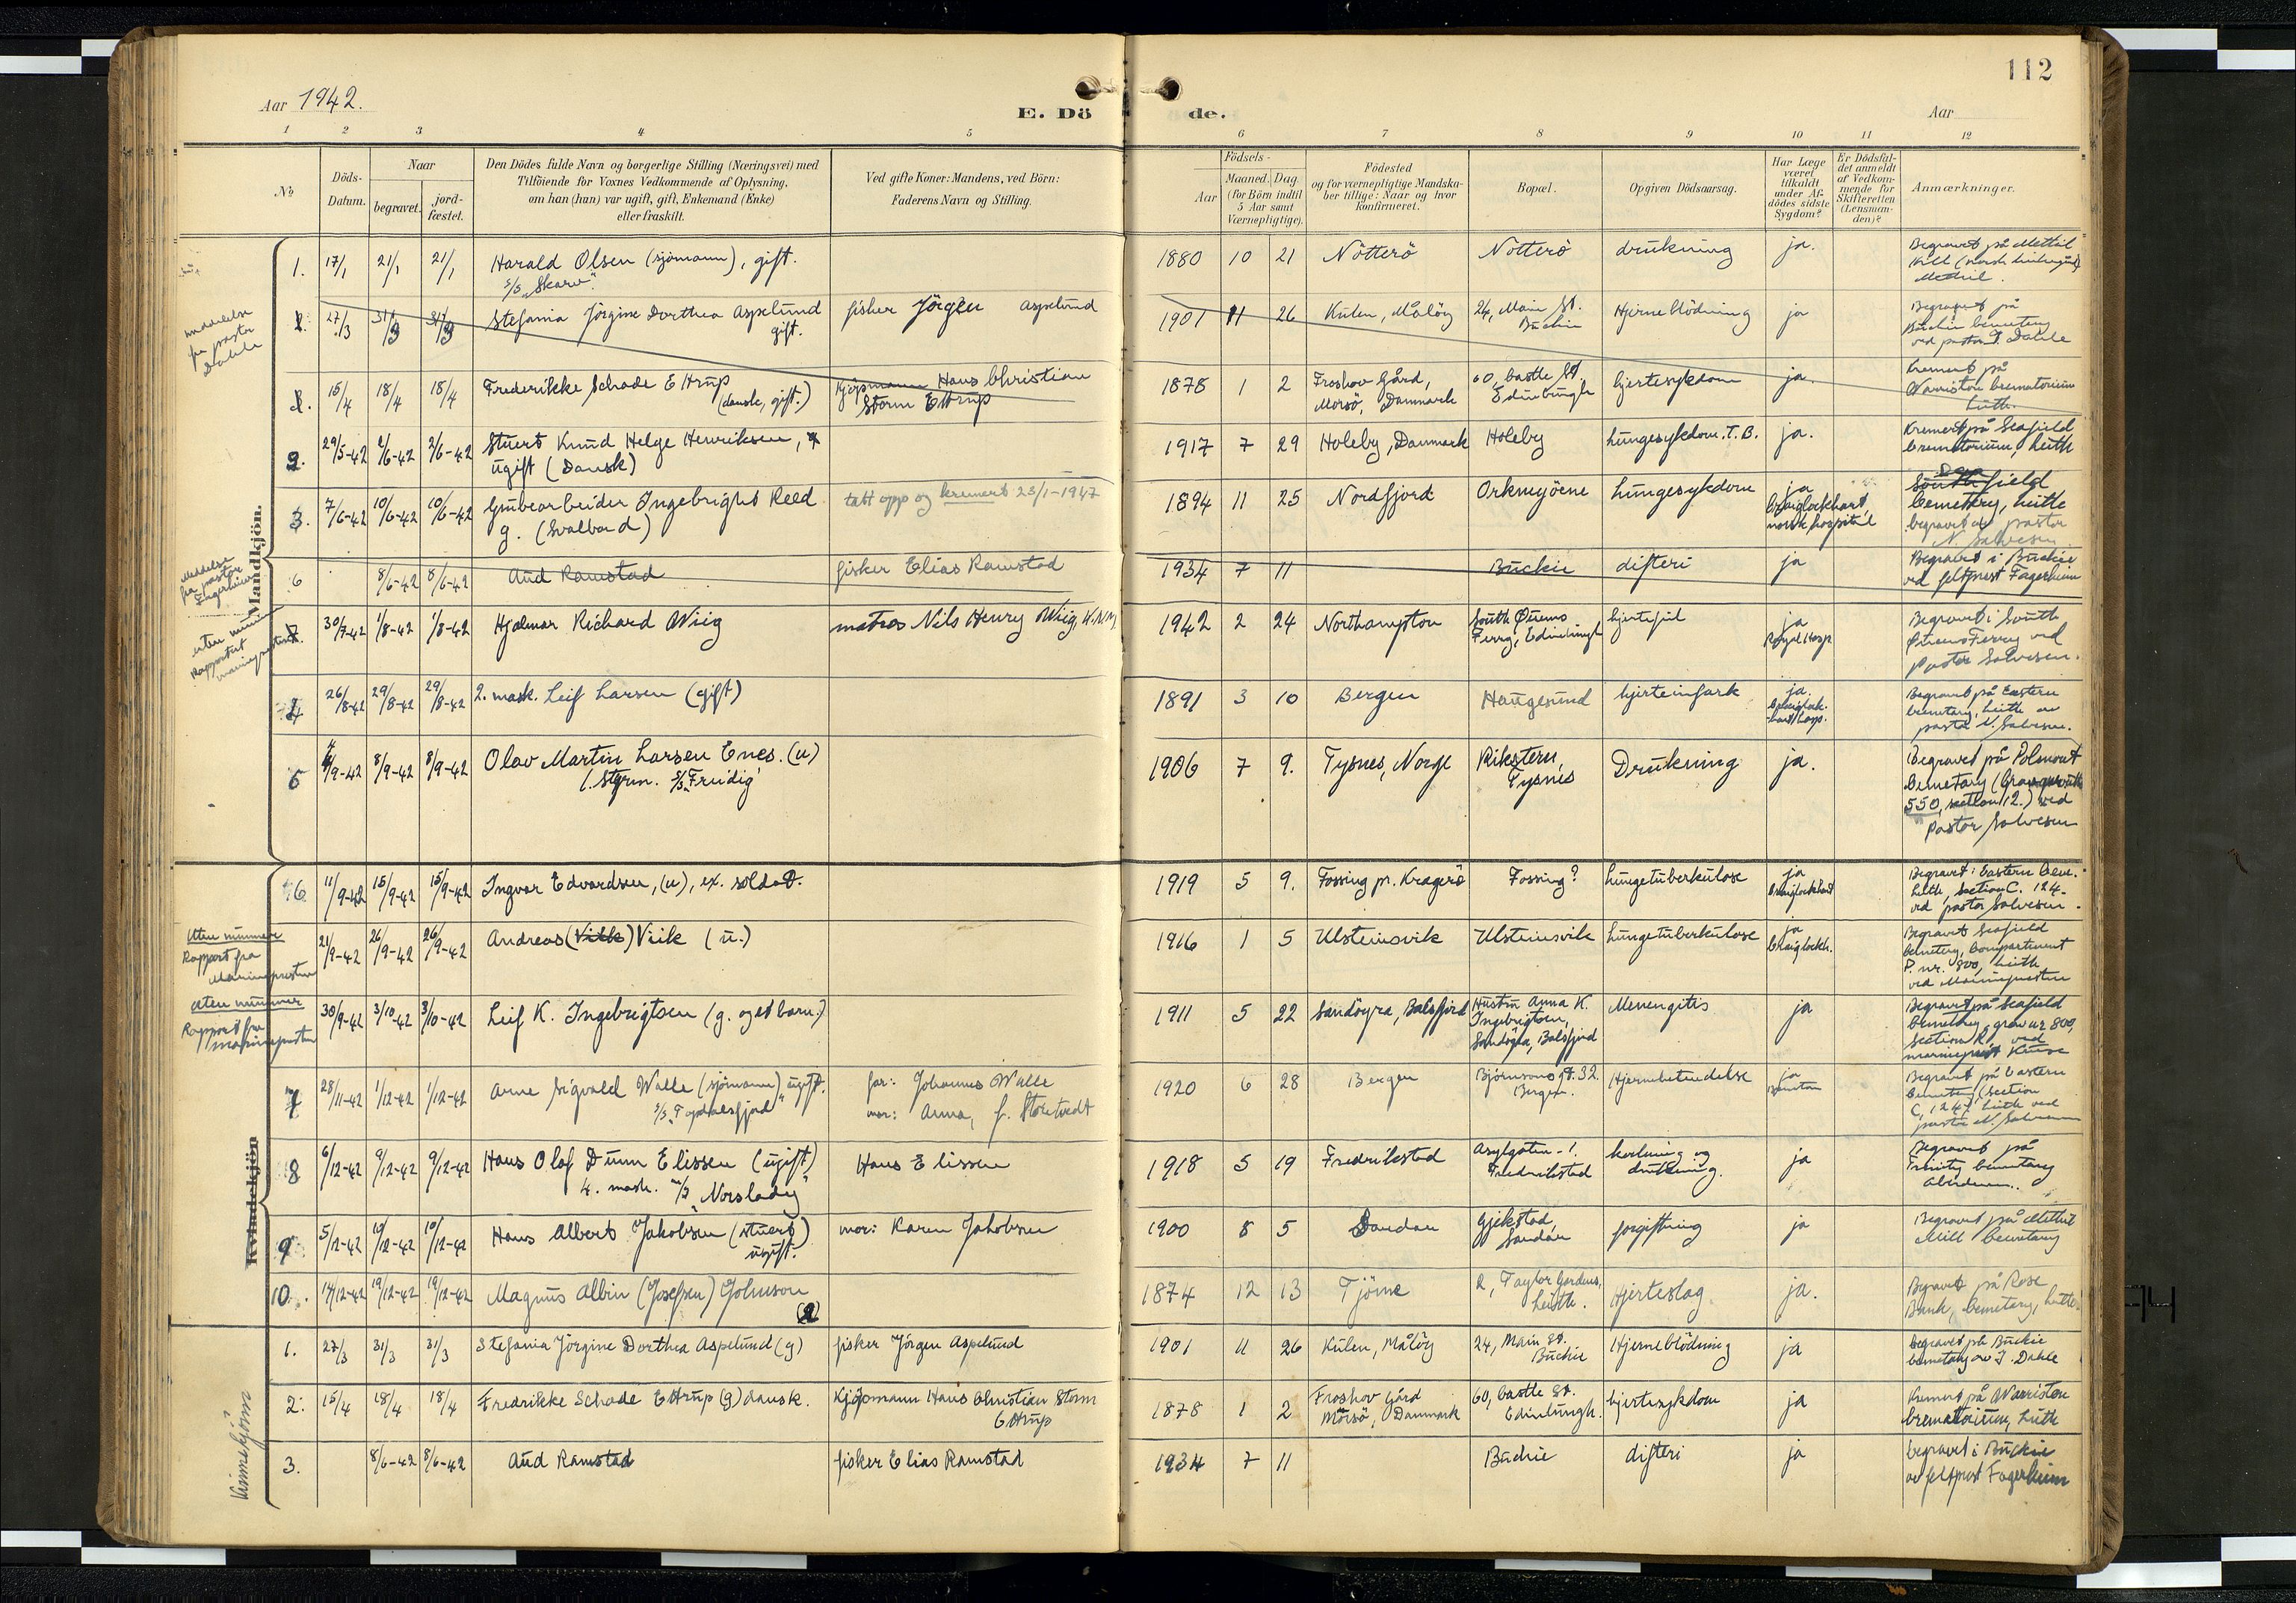 112
Aar 1942.
E. Dö de.
Aar
1 2 3 4 5 6 7 8 9 10 11 12
No
Döds-Datum.
Naar
begravet.
jord-fæstet.
Den Dödes fulde Navn og borgerlige Stilling (Næringsvei) med
Tilföiende for Voxnes Vedkommende af Oplysning,
om han (hun) var ugift, gift, Enkemand (Enke)
eller fraskilt.
Ved gifte Koner: Mandens, ved Börn:
Faderens Navn og Stilling.
Födsels-
Aar
Maaned. Dag.
(for Börn indtil
5 Aar samt
Værnepligtige).
Födested
og for værnepligtige Mandska-
ber tillige: Naar og hvor
konfirmeret.
Bopæl.
Opgiven Dödsaarsag.
Har Læge
været
tilkaldt
under Af-
dödes sidste
Sygdom?
Er Dödsfal-
det anmeldt
af Vedkom-
mende for
Skifteretten
(Lensman-
den)?
Anmærkninger.
Mandkjön.
1. 17/1 21/1 21/1 Harald Olsen (sjömann), gift. 1880 10 21 Nötterö Nötterö drukning ja. Begravet på Methil
S/S "Skarv".
meddelelse
fra pastor
Dahle
27/3 31/3 31/3 Stefania Jörgine Dorthea Aspelund fisker Jörgen Aspelund 1901 11 26 Kulen, Målöy 24, Main St. Hjerneblödning ja Begravet på
gift. Buckie Buckie cemetery
ved pastor J. Dahle
15/4 18/4 18/4 Frederikke Schade Ettrup Kjöpmann Hans Christian 1878 1 2 Froshov Gård, 60, Castle St. hjertesykdom ja. Kremert på
(dansk, gift.) Storm Ettrup Morsö, Danmark Edinburgh Warriston Crematorium
Leith.
2. 29/5-42 2/6-42 2/6-42 Stuert Knud Helge Henriksen, 1917 7 29 Holeby, Danmark Holeby lungesykdom. T.B. ja. Kremert på Seafield
ugift (Dansk) Crematorium, Leith
3. 7/6-42 10/6-42 10/6-42 Grubearbeider Ingebright Reed tatt opp og kremert 23/1-1947 1894 11 25 Nordfjord Orknøyene lungesykdom ja field
g. (Svalbard) Craiglockhart, Cemetery, Leith
norsk hospital begravet av pastor
N. Salvesen
meddelelse
fra pastor
Fagerheim
6 8/6-42 8/6-42 Aud Ramstad fisker Elias Ramstad 1934 7 11 Buckie difteri ja Begravet i Buckie
ved feltprest Fagerheim
uten nummer
Rapportert
marinepresten
30/7-42 1/8-42 1/8-42 Hjalmar Richard Wiig matros Nils Henry Wiig, 1942 2 24 Northampton South Queens hjertefeil ja Begravet i South
Ferry, Edinburgh Royal Hosp. Queens Ferry ved
pastor Salvesen.
4 26/8-42 29/8-42 29/8-42 2. mask. Leif Larsen (gift) 1891 3 10 Bergen Haugesund hjerteinfark ja. Begravet på Eastern
Craiglock-hart hosp. Cemetery, Leith av
pastor N. Salvesen.
5 4/9-42 8/9-42 8/9-42 Olav Martin Larsen Enes. (u) 1906 7 9. Tysnes, Norge Riksteru, Drukning ja. Begravet på Polmont
1. Styrm. S/S "Freidig" Tysnes Cemetery
550, section 12.) ved
pastor Salvesen
Kvindekjön
6 11/9-42 15/9-42 15/9-42 Ingvar Edvardsen, (u), ex. soldat. 1919 5 9. Fossing pr. Kragerö Fossing? lungetuberkulose ja Begravet i Eastern Cem.
Craiglockhart Leith, section C. 124.
ved pastor Salvesen.
Uten nummer
Rapport fra
Marinepresten
21/9-42 26/9-42 26/9-42 Andreas (Vikk) Viik (u.) 1916 1 5 Ulsteinsvik Ulsteinsvik lungetuberkulose ja Begravet Seafield
Craiglockh. Cemetery, Compartment
P. nr. 800, Leith
ved Marinepresten
Uten nummer
Rapport fra
marinepresten
30/9-42 3/10-42 3/10-42 Leif K. Ingebrigtsen (g. og et barn.) 1911 5 22 Sandöyra, Balsfjord Hustru Anna K. Menengitis ja Begravet på Seafield
Ingebrigtsen, Cemetery, grav nr 809,
Sandöyra, Balsfjord section R, ved
marineprest
7 28/11-42 1/12-42 1/12-42 Arne Sigvald Walle (sjömann) ugift. far: Johannes Walle 1920 6 28 Bergen Björnsonsgt. 32. Hjernebetendelse ja Begravet på Eastern
S/S "Topdalsfjord" mor: Anna, f. Storetvedt Bergen. Cemetery (section
C, 1247 Leith ved
pastor N. Salvesen
8 6/12-42 9/12-42 9/12-42 Hans Olaf Dunn Elissen (ugift) Hans Elissen 1918 5 19 Fredrikstad Asylgaten-1. og ja Begravet på
4. mask. M/S "Norslady" Fredrikstad drukning. Trinity Cemetery
Aberdeen.
9 5/12-42 10/12-42 10/12-42 Hans Albert Jakobsen (stuert) mor: Karen Jakobsen 1900 8 5 Sandar Gjekstad, forgiftning ja Begravet på Methil
ugift. Sandar Mill Cemetery
10. 14/12-42 19/12-42 19/12-42 Magnus Albin (Josefsen) Johnson 1874 12 13 Tjöme 2, Taylor Gardens, Hjerteslag ja. Begravet på Rose
Leith. Bank, Cemetery, Leith
Kvinnekjönn
1. 27/3 31/3 31/3 Stefania Jörgine Dorthea Aspelund (g) fisker Jörgen Aspelund 1901 11 26 Kulen, Målöy 24, Main St. Hjerneblödning ja begravet på Buckie
Buckie cemetary av J. Dahle
2. 15/4 18/4 18/4 Fredrikke Schade Ettrup (g) dansk. Kjöpmann Hans Christian Storm 1878 1 2 Froshov Gård 60, Castle St. hjertesykdom ja Kremert på Warriston
Ettrup Morsö, Danmark Edinburgh. Crematorium, Leith
3. 8/6-42 8/6-42 Aud Ramstad fisker Elias Ramstad 1934 7 11 Buckie difteri ja begravet i Buckie
av feltprest Fagerheim